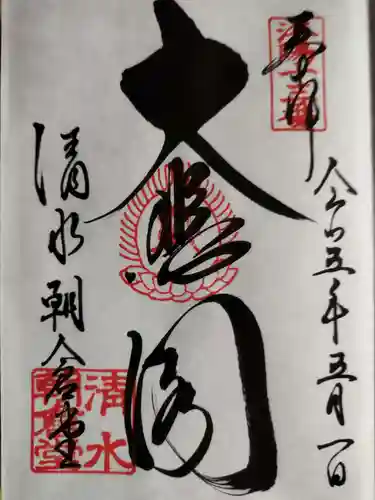 奉拝
令和五年五月一日
大悲閣
清水朝倉堂
清水
朝倉堂